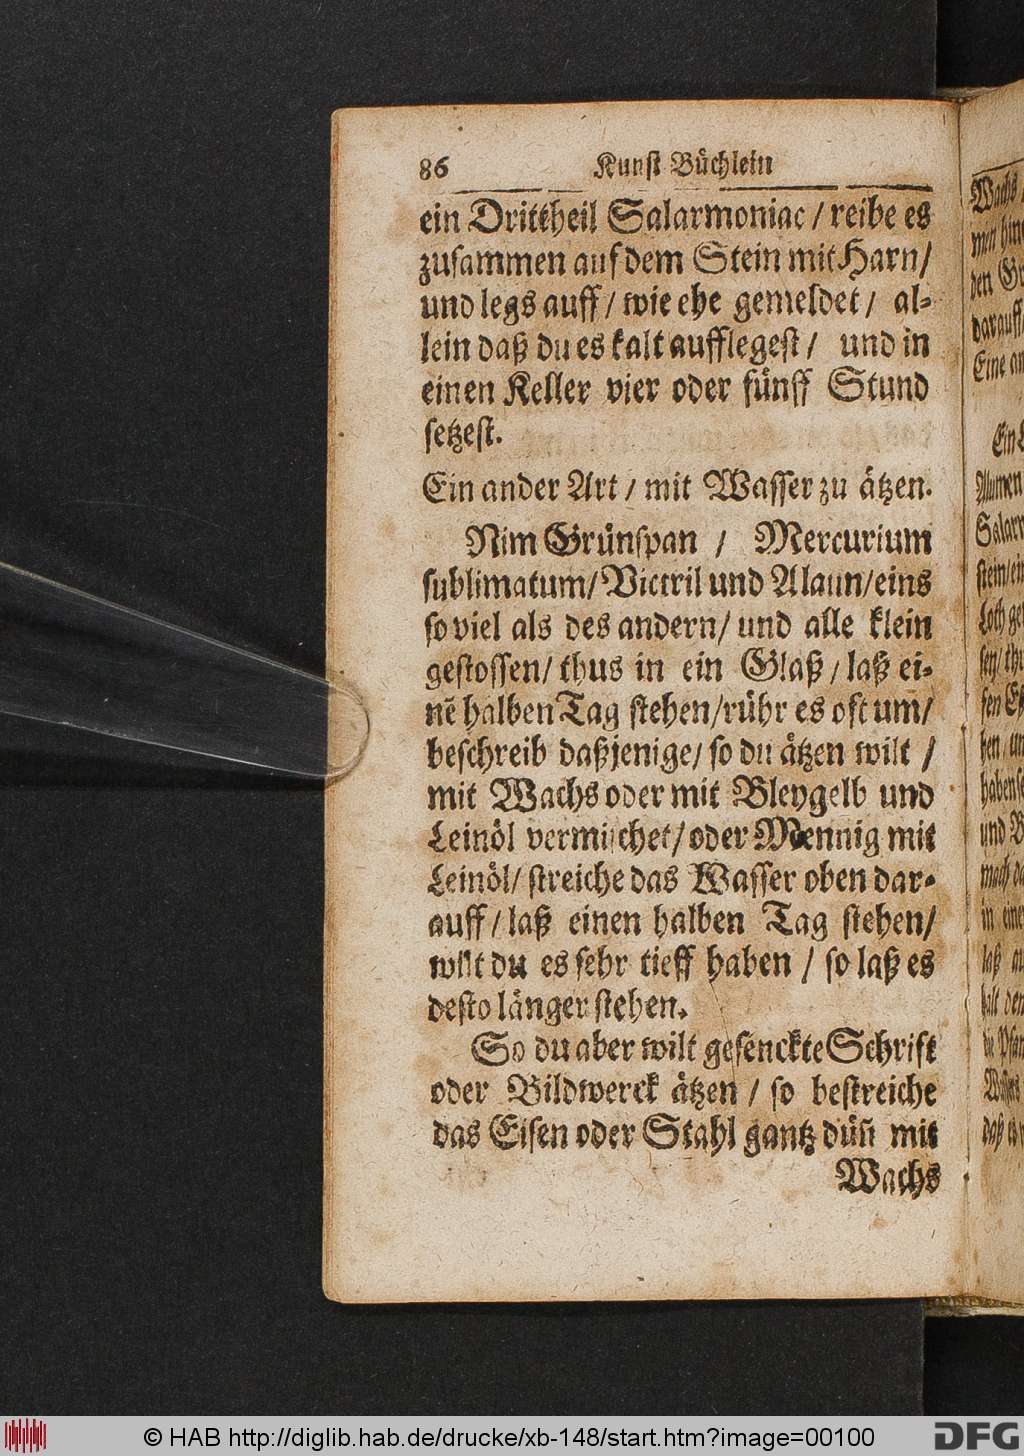 86 Kunst Büchlein
ein Drittheil Salarmoniac / reibe es
zusammen auf dem Stein mit Harn/
und legs auff / wie ehe gemeldet / al-
lein daß du es kalt aufflegest / und in
einen Keller vier oder fünff Stund
setzest.
Ein ander Art / mit Wasser zu ätzen.
Nim Grünspan / Mercurium
sublimatum/ Victril und Alaun/eins
so viel als des andern/ und alle klein
gestossen/ thus in ein Glaß / laß ei-
nē halben Tag stehen/rühr es oft um/
beschreib daßjenige/ so du ätzen wilt /
mit Wachs oder mit Bleygelb und
Leinöl vermischet/ oder Mennig mit
Leinöl/ streiche das Wasser oben dar-
auff / laß einen halben Tag stehen/
wilt du es sehr tieff haben / so laß es
desto länger stehen.
So du aber wilt gesenckte Schrift
oder Bildwerck ätzen / so bestreiche
das Eisen oder Stahl gantz düñ mit
Wachs
Wachs
den
darauff
Eine
Ein
Alumen
stein/
Loth
und
in eine
laß
© HAB http://diglib.hab.de/drucke/xb-148/start.htm?image=00100
DFG